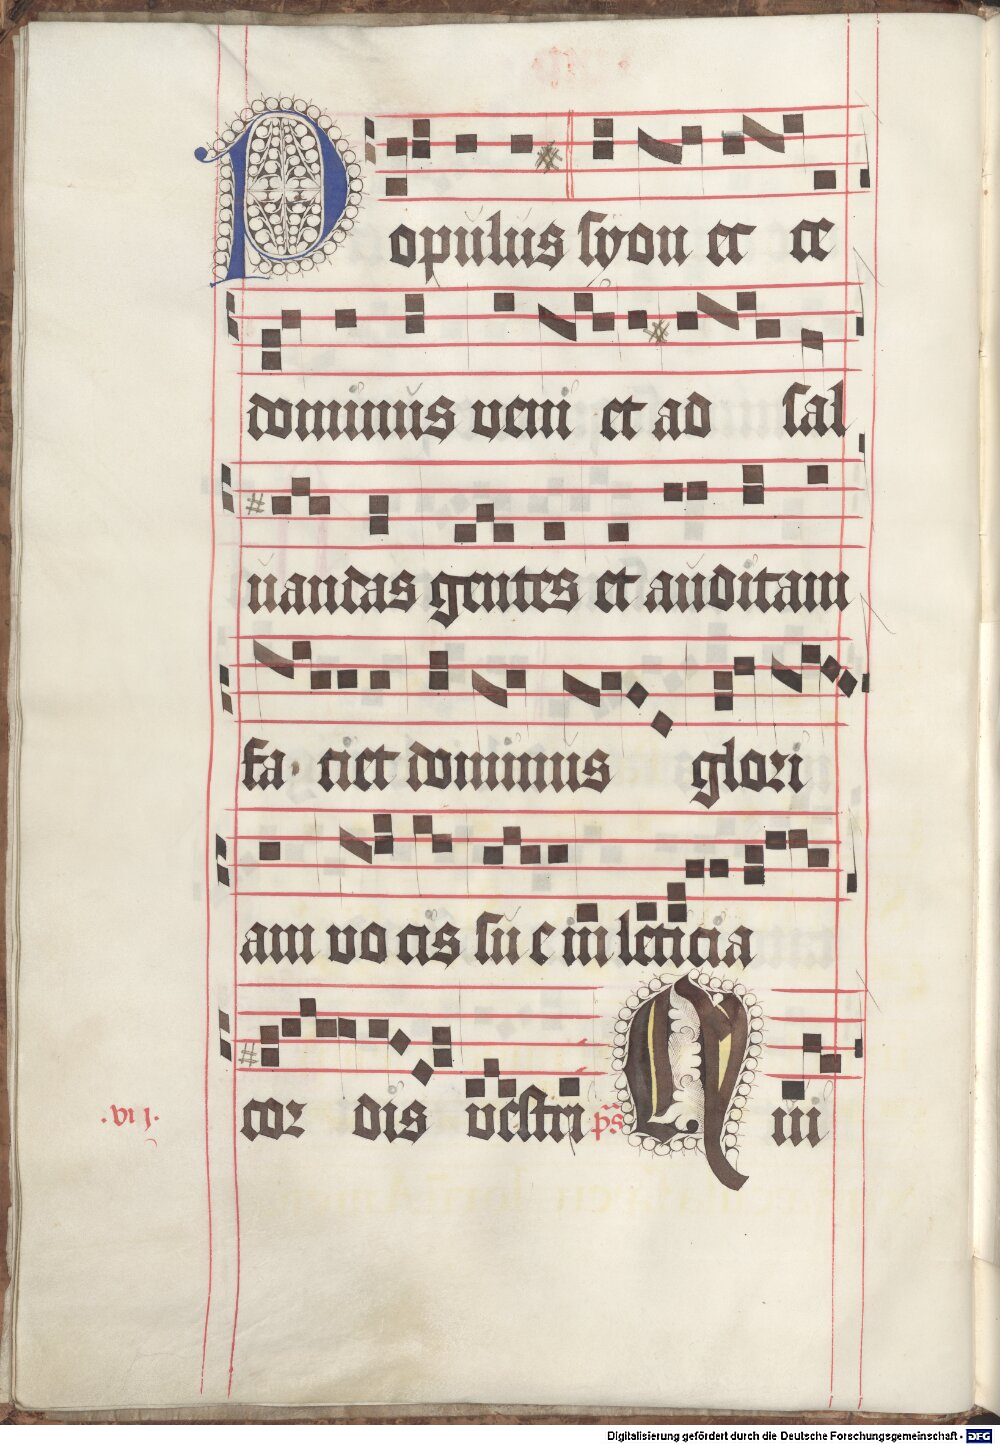 Populus syon ecce
dominus veniet ad sal
uandas gentes et auditam
fa ciet dominus glori
am vo cis su e in leticia
cor dis vestri ps Qui
.vij.
Digitalisierung gefördert durch die Deutsche Forschungsgemeinschaft - DFG